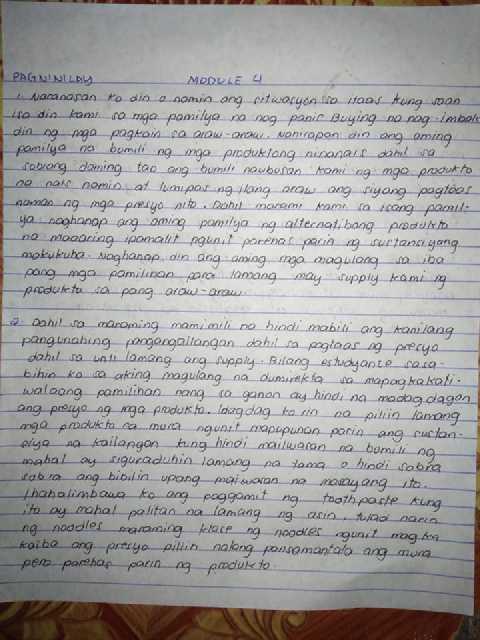 PAGNINILAY MODULE 4
1. Naranasan ko din o namin ang sitwasyon sa itaas kung saan
isa din kami sa mga pamilya na nag panic Buying na nag-imbak
din ng mga pagkain sa araw-araw. Nahirapan din ang aming
pamilya na bumili ng mga produktong ninanais dahil sa
sobrang daming tao ang bumili naubusan kami ng mga produkto
na nais namin at lumipas ng ilang araw ang siyang pagtaas
naman ng mga presyo nito. Dahil marami kami sa isang pamil-
ya naghanap ang aming pamilya ng alternatibong produkto
na maaaring ipamalit ngunit parehas parin ng sustansiyang
makukuha. Naghanap din ang aming mga magulang sa iba
pang mga pamilihan para lamang may supply kami ng
produkto sa pang araw-araw.
2. Dahil sa maraming mamimili na hindi mabili ang kanilang
pangunahing pangangailangan dahil sa pagtaas ng presyo
dahil sa unti lamang ang supply. Bilang estudyante sasa-
bihin ko sa aking magulang na dumirekta sa mapagkakati-
walaang pamilihan nang sa ganon ay hindi na madagdagan
ang presyo ng mga produkto. Idagdag ko rin na piliin lamang
mga produkto na mura ngunit mapupunan parin ang sustan-
siya na kailangan kung hindi maiiwasan na bumili ng
mahal ay siguraduhin lamang na tama o hindi sobra
sobra ang bibilin upang maiwasan na masayang ito.
Ihahalimbawa ko ang paggamit ng toothpaste kung
ito ay mahal palitan na lamang ng asin, tulad narin
ng noodles maraming klase ng noodles ngunit magka
kaiba ang presyo piliin nalang pansamantala ang mura
pero parehas parin ng produkto.